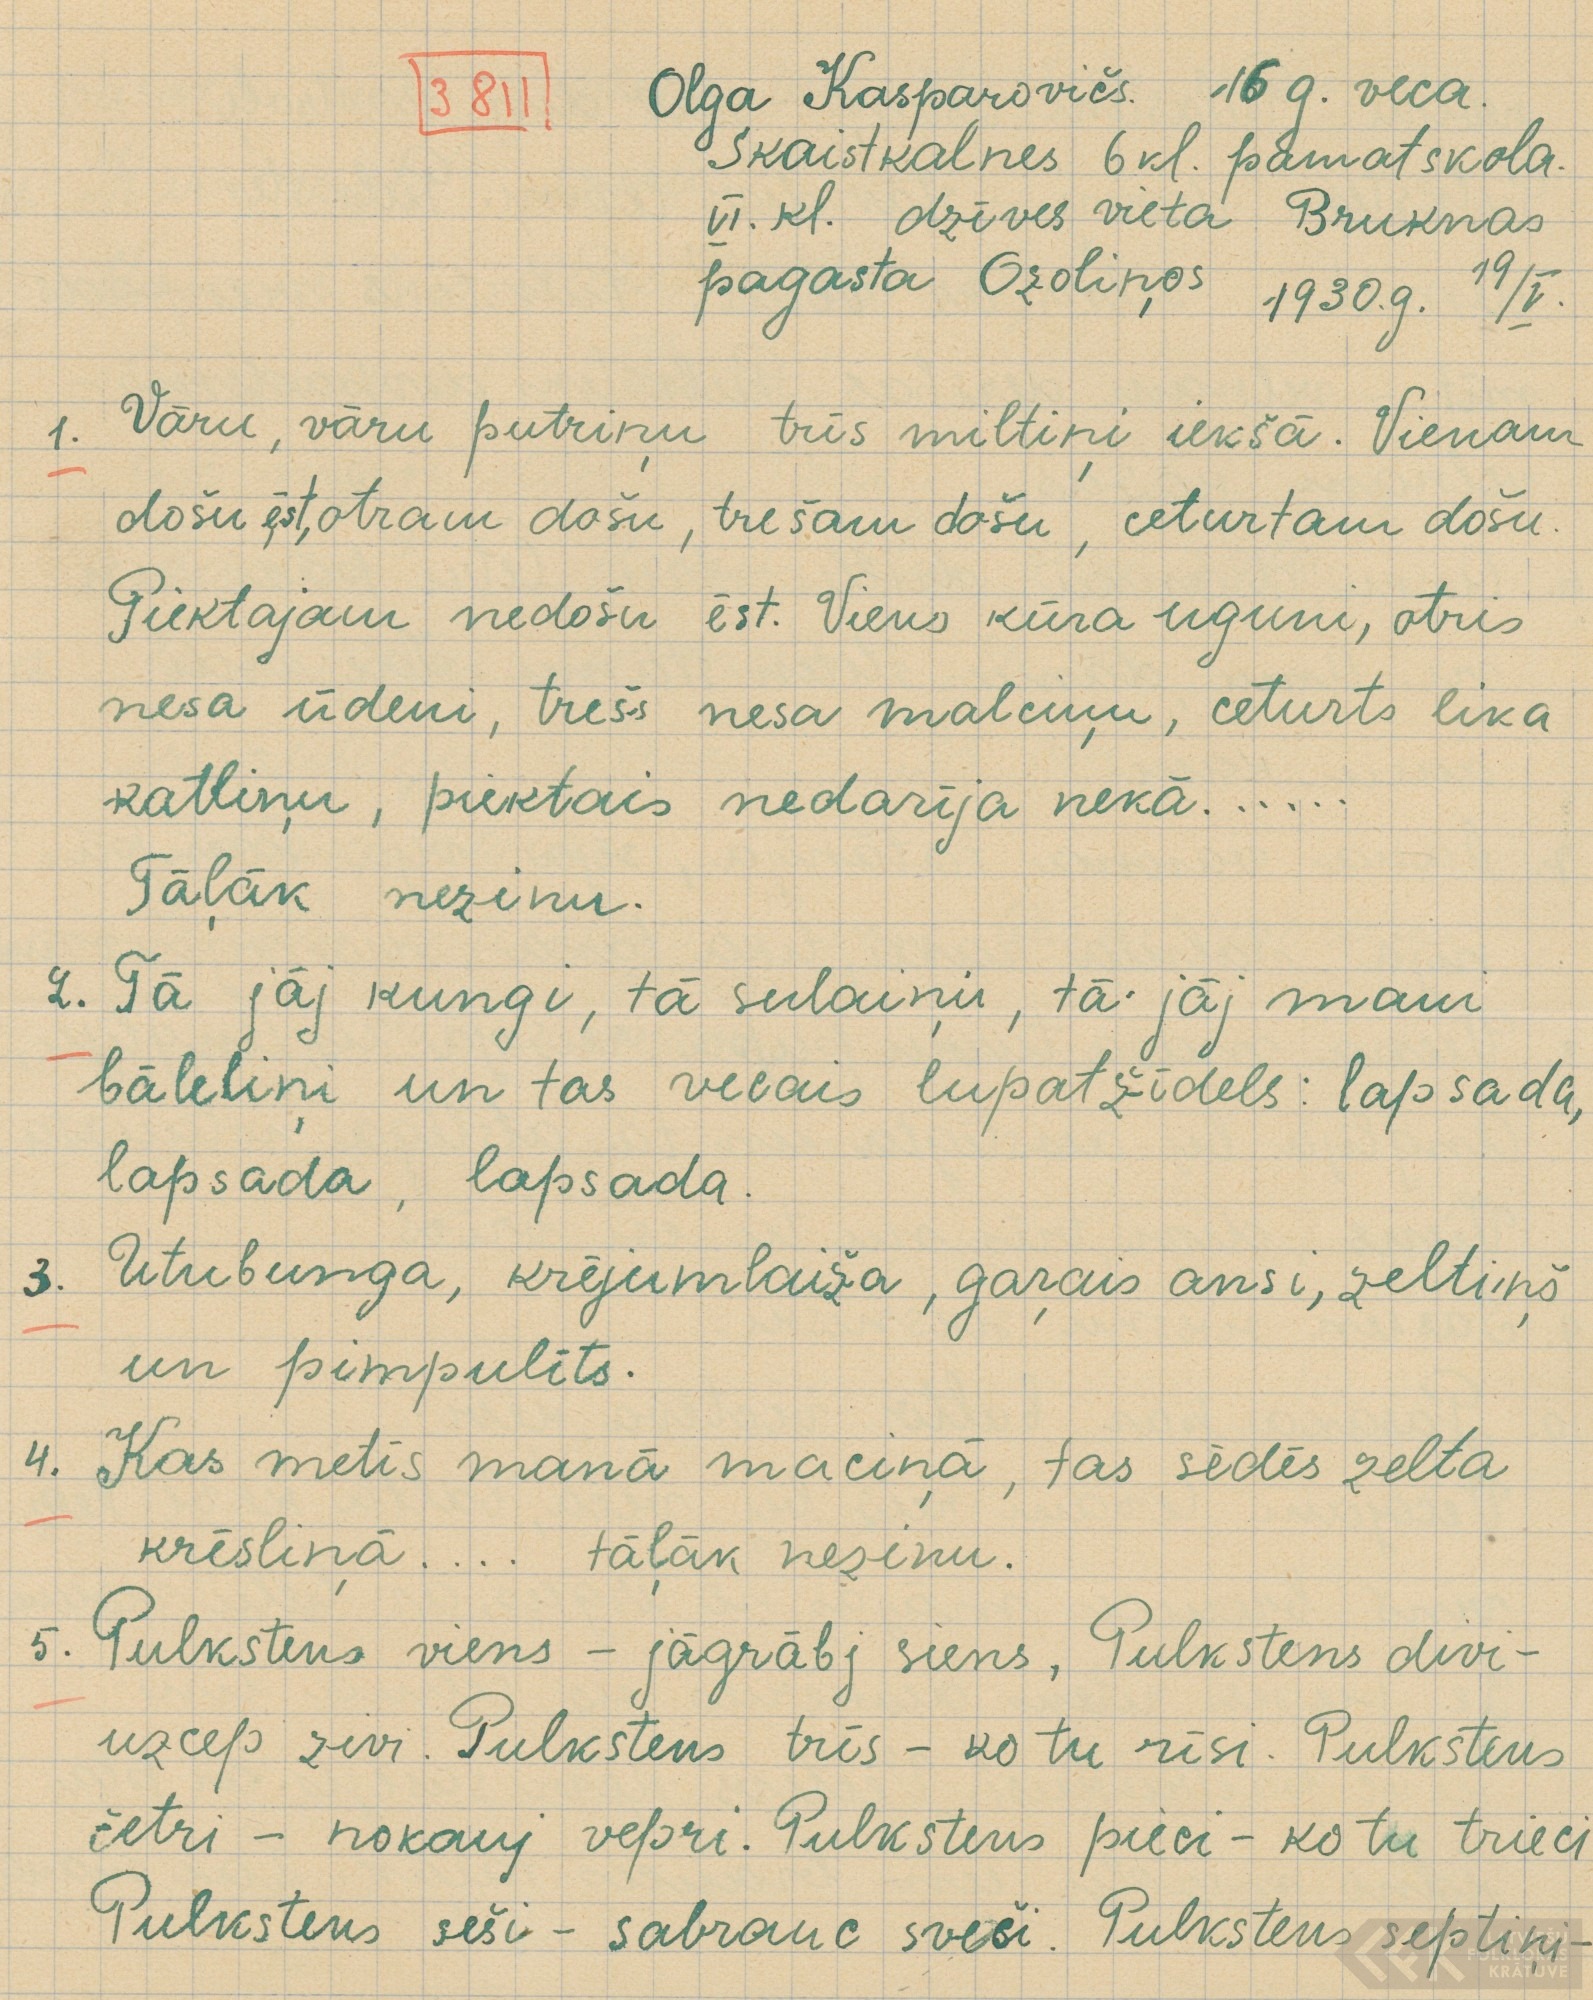 3811
Olga Kasparovičs. 16 g. veca.
Skaistkalnes 6 kl. pamatskola.
VI. kl. dzīves vieta Bruknas
pagasta Ozoliņos 1930.g. 19/V.
1. Vāru, vāru putriņu trīs miltiņi iekšā. Vienam
došu ēst, otram došu, trešam došu, ceturtam došu.
Piektajam nedošu ēst. Viens kūra uguni, otris
nesa ūdeni, trešs nesa malciņu, ceturts lika
katliņu, piektais nedarīja nekā......
Tāļāk nezinu.
2. Tā jāj kungi, tā sulaiņi, tā jāj mani
bāleliņi un tas vecais lupatžīdels: lapsada,
lapsada, lapsada.
3. Utubunga, krējumlaiža, gaŗais ansi, zeltiņš
un pimpulīts.
4. Kas metīs manā maciņā, tas sēdēs zelta
krēsliņā.... tāļāk nezinu.
5. Pulkstens viens – jāgrābj siens, Pulkstens divi –
uzcep zivi. Pulkstens trīs – ko tu rīsi. Pulkstens
četri – nokauj vepri. Pulkstens pieci – ko tu trieci
Pulkstens seši – sabrauc sveši. Pulkstens septiņi –
KRĀTUVE